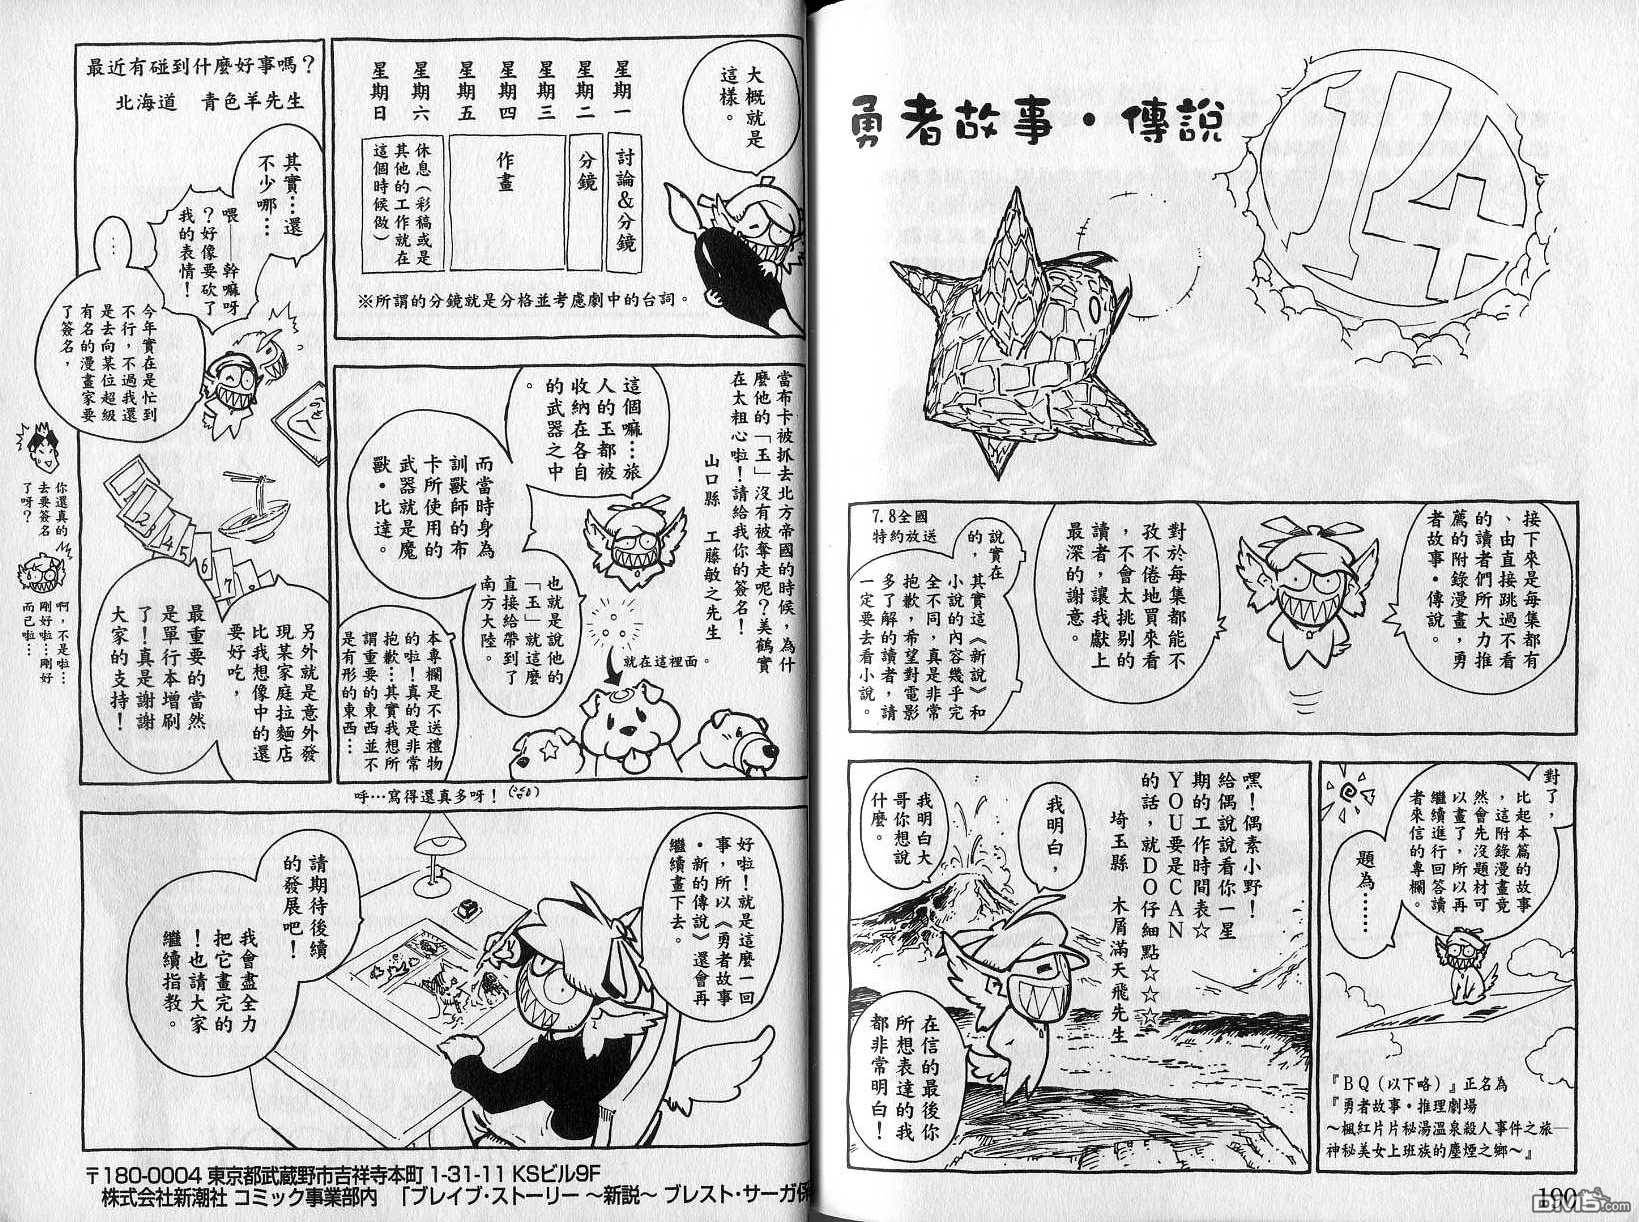 勇者故事・傳說
14
接下來是每集都有
、由直接跳過不看
的讀者們所大力推
薦的附錄漫畫，勇
者故事・傳說。
對於每集都能不
孜不倦地買來看
，不會太挑剔的
讀者，讓我獻上
最深的謝意。
7.8全國
特約放送
說實在
的，
其實這《新說》和
小說的內容幾乎完
全不同，真是非常
抱歉，希望對電影
多了解的讀者，請
一定要去看小說。
對了，
比起本篇的故事
，這附錄漫畫竟
然會先沒題材可
以畫了，所以再
繼續進行回答讀
者來信的專欄。
題為……
『BQ（以下略）』正名為
『勇者故事・推理劇場
～楓紅片片秘湯溫泉殺人事件之旅─
神秘美女上班族的塵煙之鄉～』
嘿！偶素小野！
給偶說說看你一星
期的工作時間表☆
YOU要是CAN
的話，就DO仔細點☆☆☆
埼玉縣　木屑滿天飛先生
我明白，
我明白大
哥你想說
什麼。
在信的最後你
所想表達的我
都非常明白！
190
大概就是
這樣。
星期一
星期二
星期三
星期四
星期五
星期六
星期日
討論&分鏡
分鏡
作畫
休息（彩稿或是
其他的工作就在
這個時候做）
※所謂的分鏡就是分格並考慮劇中的台詞。
當布卡被抓去北方帝國的時候，為什
麼他的「玉」沒有被奪走呢？美鶴實
在太粗心啦！請給我你的簽名！
山口縣　工藤敏之先生
這個嘛…旅
人的玉都被
收納在各自
的武器之中
。
而當時身為
訓獸師的布
卡所使用的
武器就是魔
獸・比達。
也就是說他的
「玉」就這麼
直接給帶到了
南方大陸。
就在這裡面。
本專欄是不送禮物
的啦！真的是非常
抱歉…其實我想所
謂重要的東西並不
是有形的東西…
最近有碰到什麼好事嗎？
北海道　青色羊先生
其實…還
不少哪…
喂──幹嘛呀
？好像要砍了
我的表情！
…
今年實在是忙到
不行，不過我還
是去向某位超級
有名的漫畫家要
了簽名，
你還真的
去要簽名
了呀？
啊，不是啦…
剛好啦…剛好
而已啦…
另外就是意外發
現某家庭拉麵店
比我想像中的還
要好吃，
最重要的當然
是單行本增刷
了！真是謝謝
大家的支持！
呼…寫得還真多呀！
好啦！就是這麼一回
事，所以《勇者故事
・新的傳說》還會再
繼續畫下去。
請期待後續
的發展吧！
我會盡全力
把它畫完的
！也請大家
繼續指教。
〒180-0004 東京都武蔵野市吉祥寺本町 1-31-11 KSビル9F
株式会社新潮社 コミック事業部内　「ブレイブ・ストーリー ～新説～ ブレスト・サーガ係